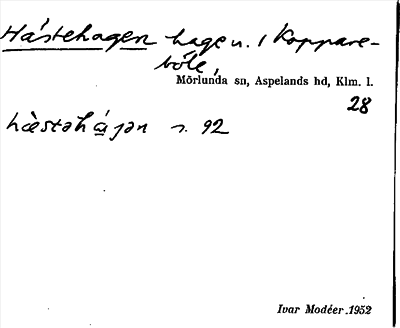 Hästehagen hage n. i Koppare-
böle,
Mörlunda sn, Aspelands hd, Klm. l.
28
hæ̀stəhá̱gən s. 92
Ivar Modéer.1952